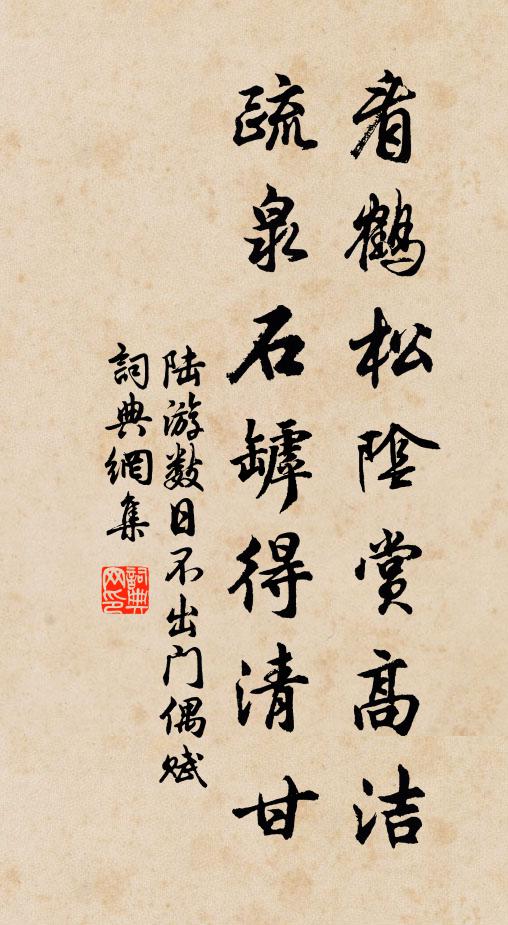 看鶴松陰賞高洁
疏泉石罅得清甘
陆游数日不出门偶赋
詞典網集
詞典网印